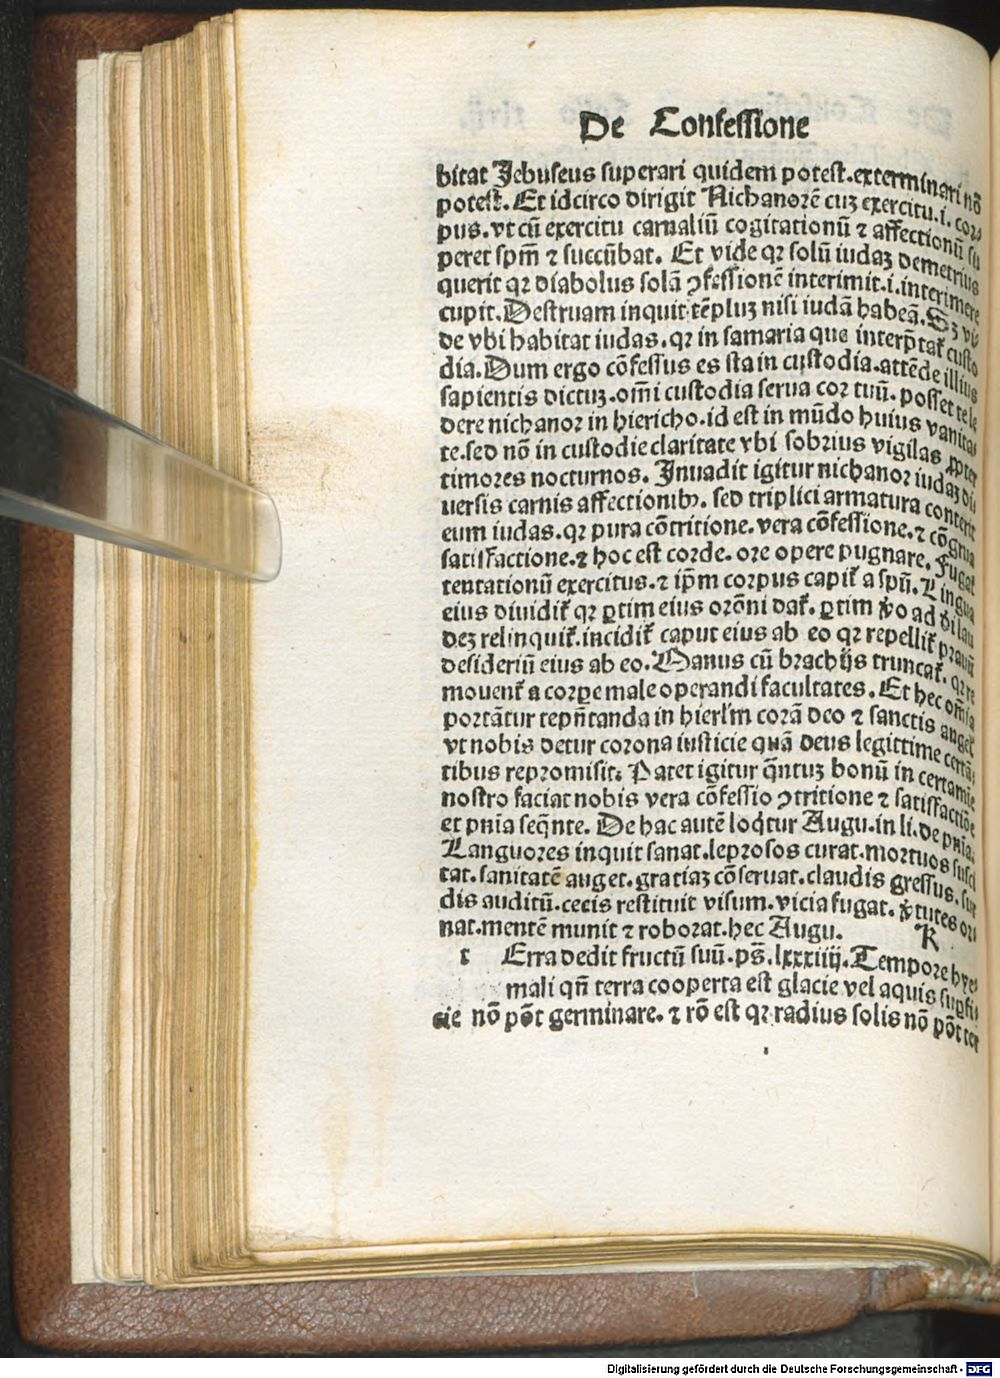 De Confessione
bitat Jebuseus superari quidem potest.exterminari nō
potest. Et idcirco dirigit Nichanorē cuȝ exercitu.i. cor⸗
pus.vt cū exercitu carnaliū cogitationū ⁊ affectionū su
peret spm̄ ⁊ succūbat. Et vide qꝛ solū iudaȝ demetrius
querit qꝛ diabolus solā ꝯfessionē interimit.i.interimere
cupit. Destruam inquit tēpluȝ nisi iudā habeā. Sȝ vi⸗
de vbi habitat iudas.qꝛ in samaria que interp̄tat᷑ custo
dia. Dum ergo cōfessus es sta in custodia.attēde illius
sapientis dictuȝ.om̄i custodia serua cor tuū. posset te le
dere nichanor in hiericho.id est in mūdo huius vanita⸗
te.sed nō in custodie claritate vbi sobrius vigilas ꝓpter
timores nocturnos. Inuadit igitur nichanor iudaȝ di
uersis carnis affectionibꝰ. sed triplici armatura conterit
eum iudas.qꝛ pura cōtritione.vera cōfessione.⁊ cōgrua
satisfactione.⁊ hoc est corde.ore opere pugnare. Fugat᷑
tentationū exercitus.⁊ ip̄m corpus capit᷑ a spū. Lingua
eius diuidit᷑ qꝛ ꝑtim eius orōni dat᷑. ꝑtim ꝟo ad dei lau
deȝ relinquit᷑.incidit᷑ caput eius ab eo qꝛ repellit᷑ prauū
desideriū eius ab eo. Manus cū brachijs truncat᷑. qꝛ re
mouent᷑ a corꝑe male operandi facultates. Et hec om̄ia
portātur rep̄ntanda in hierl'm corā deo ⁊ sanctis angel᷑
vt nobis detur corona iusticie quā deus legittime certā⸗
tibus repromisit. Patet igitur q̄ntuȝ bonū in certamie
nostro faciat nobis vera cōfessio ꝯtritione ⁊ satisfactiōe
et pn̄ia seq̄nte. De hac autē loq̇tur Augu.in li.de pn̄ia.
Languores inquit sanat.leprosos curat.mortuos susci
tat.sanitatē auget.gratiaȝ cōseruat.claudis gressus.sur
dis auditū.cecis restituit visum.vicia fugat. ꝟtutes or⸗
nat.mentē munit ⁊ roborat.hec Augu. K
t Erra dedit fructū suū.ps̄.lxxxiiij. Tempore hye⸗
mali qn̄ terra cooperta est glacie vel aquis suꝑfi⸗
cie nō pōt germinare. ⁊ rō est qꝛ radius solis nō pōt ter
Digitalisierung gefördert durch die Deutsche Forschungsgemeinschaft - DFG